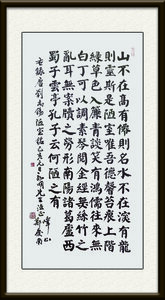 山不在高有僊則名水不在深有龍
則靈斯是陋室惟吾德馨苔痕上階
綠草色入簾青談笑有鴻儒往來無
白丁可以調素琴閱金經無絲竹之
亂耳無案牘之勞形南陽諸葛廬西
蜀子雲亭孔子云何陋之有
右錄唐劉禹錫陋室銘 明先生法正